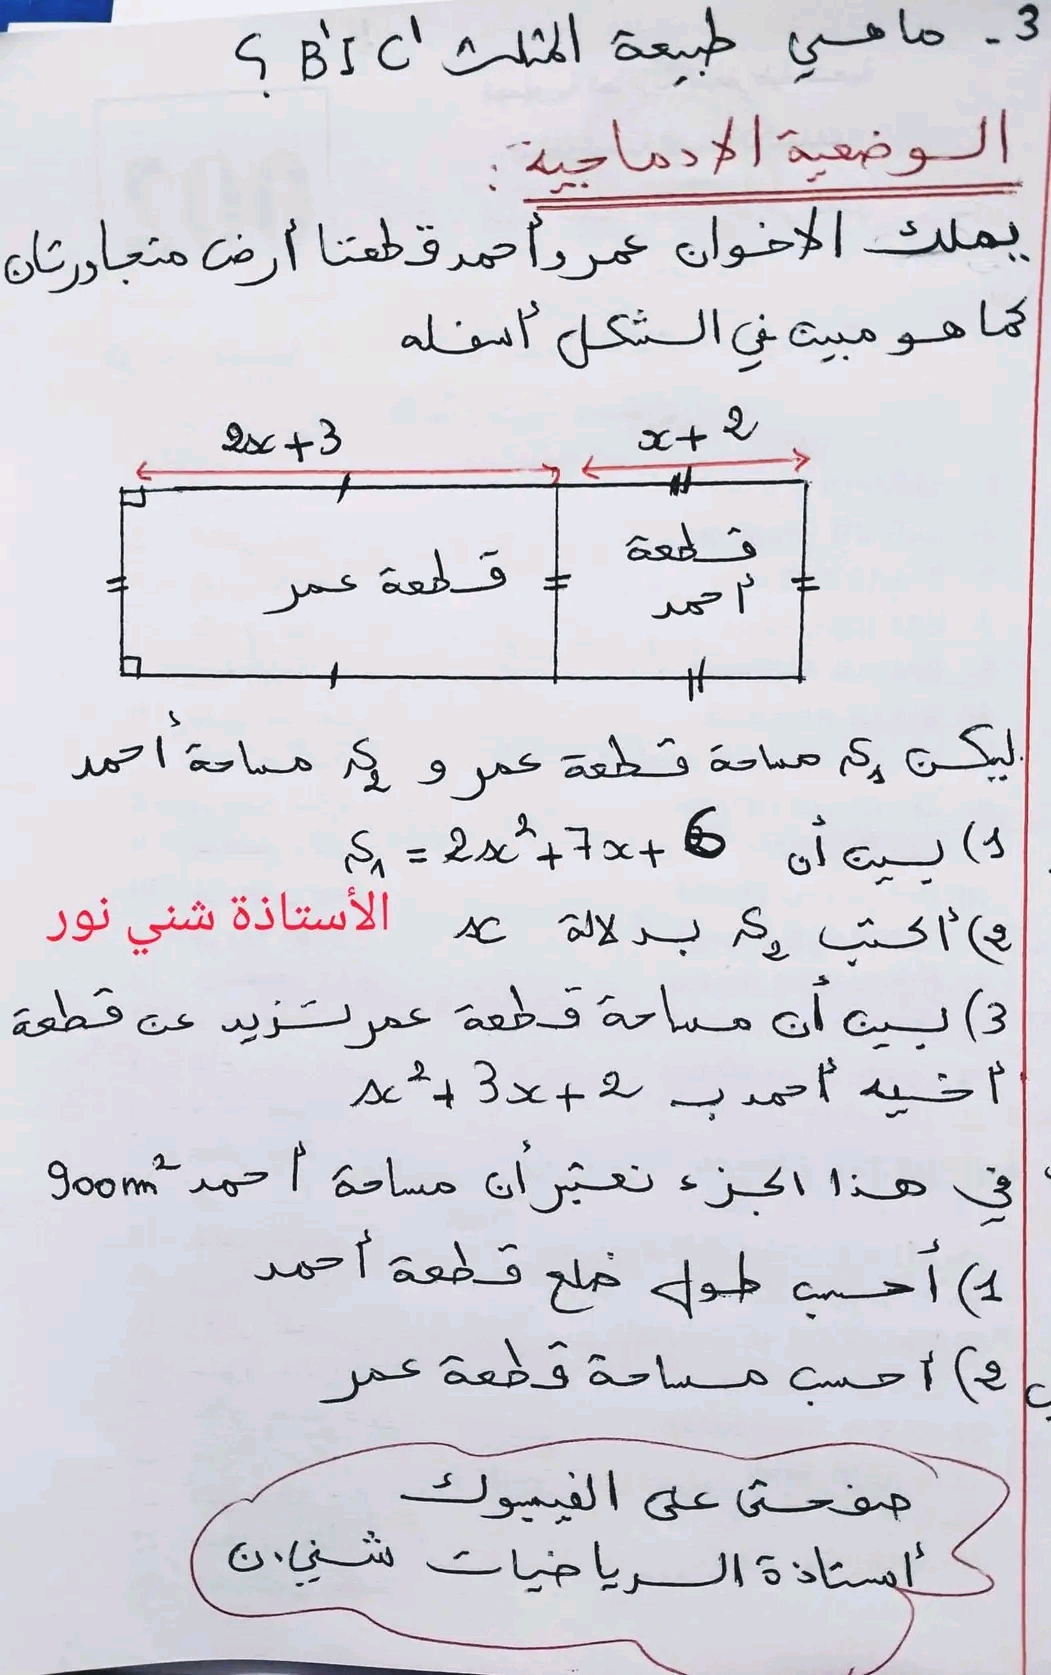 3 - ما هي طبيعة المثلث B'IC' ؟
الوضعية الادماجية :
يملك الاخوان عمر وأحمد قطعتا أرض متجاورتان
كما هو مبين في الشكل أسفله
2x+3
x+2
قطعة عمر
قطعة
أحمد
ليكن S₁ مساحة قطعة عمر و S₂ مساحة أحمد
1) بين أن S₁ = 2x²+7x+6
2) أكتب S₂ بدلالة x
الأستاذة شني نور
3) بين أن مساحة قطعة عمر تزيد عن قطعة
أخيه أحمد ب x²+3x+2
في هذا الجزء نعتبر أن مساحة أحمد 900m²
1) أحسب طول ضلع قطعة أحمد
2) احسب مساحة قطعة عمر
صفحتي على الفيسوك
أستاذة الرياضيات شني.ن